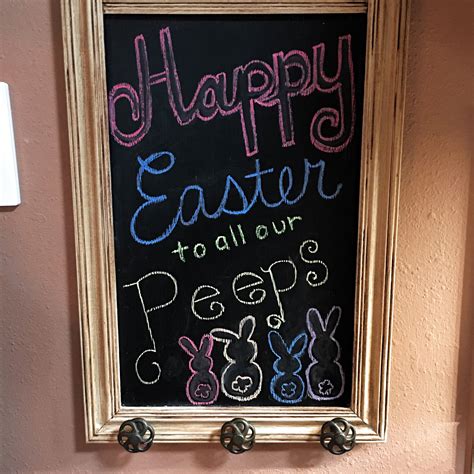 Happy
Easter
to all our
Peeps